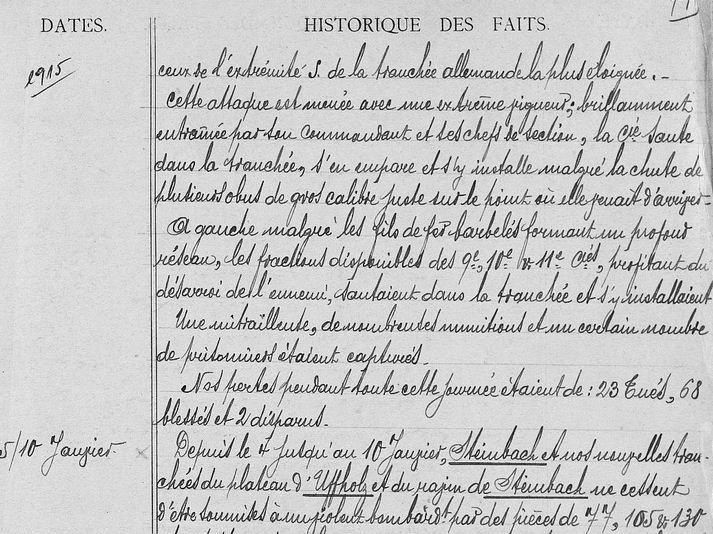 DATES. HISTORIQUE DES FAITS.
1915
ceux de l'extrémité S. de la tranchée allemande la plus éloignée. -
Cette attaque est menée avec une extrême vigueur ; brillamment
entraînée par son Commandant et ses chefs de section, la Cie saute
dans la tranchée, s'en empare et s'y installe malgré la chute de
plusieurs obus de gros calibre juste sur le point où elle venait d'arriver -
A gauche malgré les fils de fer barbelés formant un profond
réseau, les fractions disponibles des 9e, 10e & 11e Cies, profitant du
désarroi de l'ennemi, sautaient dans la tranchée et s'y installaient
Une mitrailleuse, de nombreuses munitions et un certain nombre
de prisonniers étaient capturés.
Nos pertes pendant toute cette journée étaient de : 23 Tués, 68
blessés et 2 disparus.
5/10 Janvier. Depuis le 4 jusqu'au 10 Janvier, Steinbach et nos nouvelles tran-
chées du plateau d'Uffholz et du ravin de Steinbach ne cessent
d'être soumises à un violent bombardt par des pièces de 77, 105 & 130